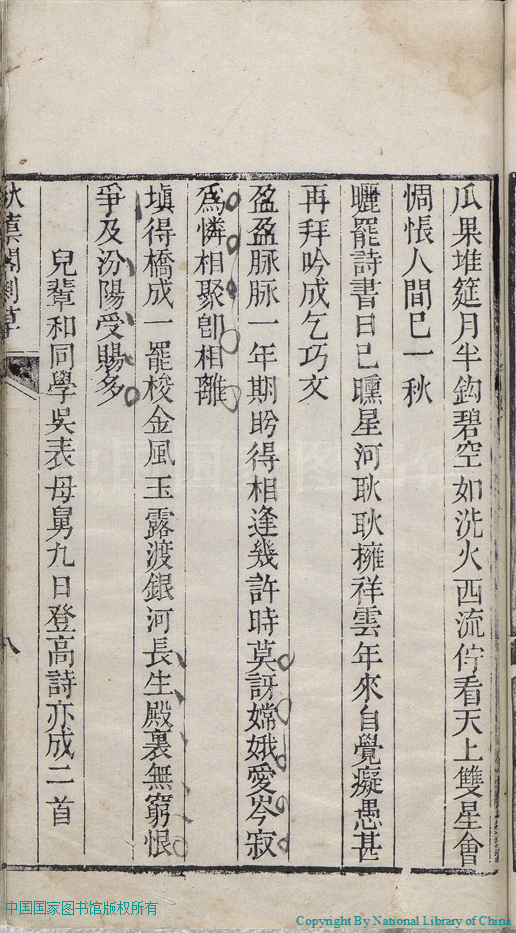 瓜果堆筵月半鈎碧空如洗火西流佇看天上雙星會
惆悵人間已一秋
曬罷詩書日已曛星河耿耿擁祥雲年來自覺癡愚甚
再拜吟成乞巧文
盈盈脉脉一年期盼得相逢幾許時莫訝嫦娥愛岑寂
爲憐相聚卽相離
塡得橋成一罷梭金風玉露渡銀河長生殿裏無窮恨
爭及汾陽受賜多
兒輩和同學吳表母舅九日登高詩亦成二首
八
中国国家图书馆版权所有
Copyright By National Library of China